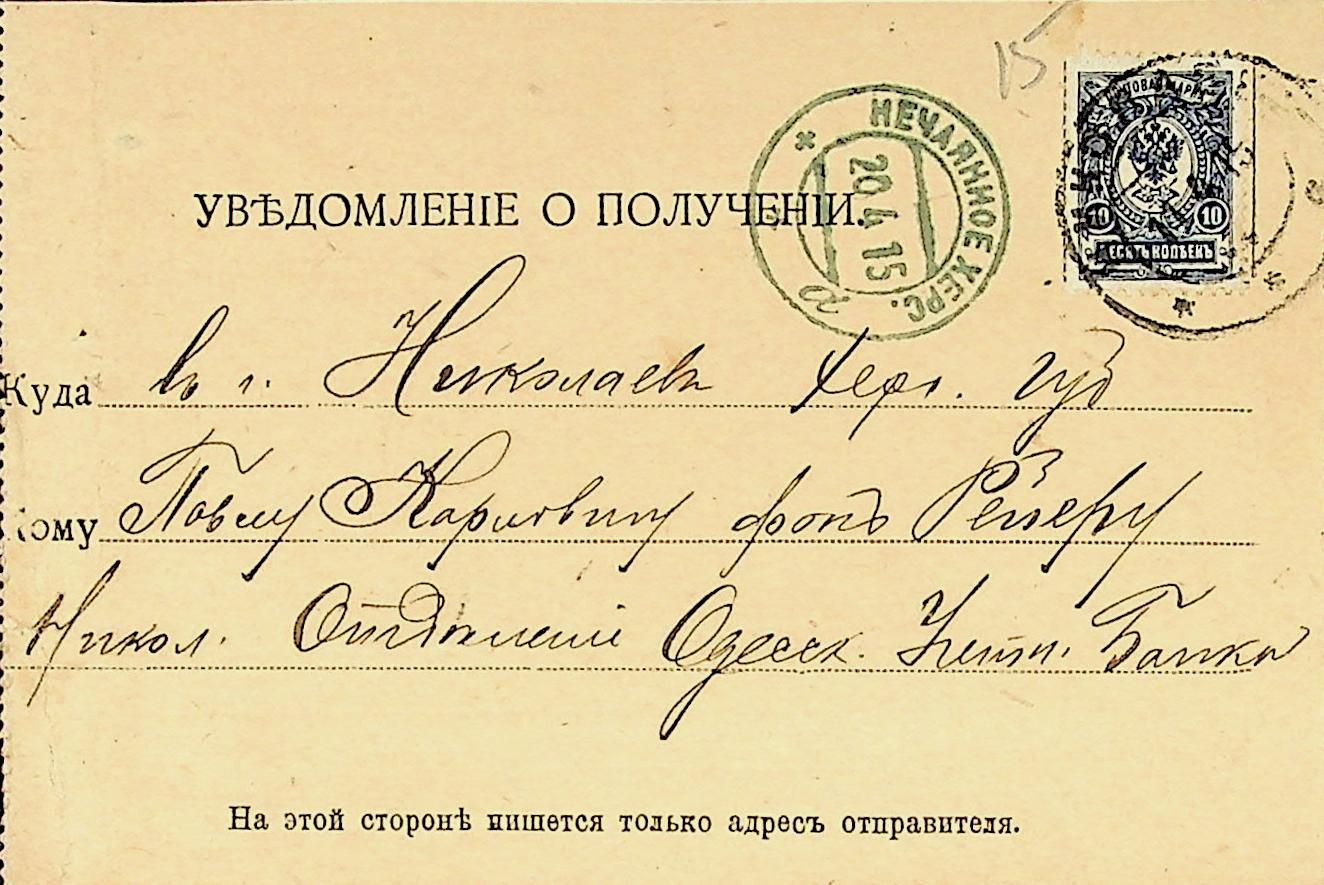 15
ПОЧТОВАЯ МАРКА
10 10
ДЕСЯТЬ КОПѢЕКЪ
НЕЧАЯННОЕ ХЕРС.
20 4 15
а
УВѢДОМЛЕНІЕ О ПОЛУЧЕНІИ.
Куда въ г. Николаевъ Херс. губ
Кому Павлу Карловичу фонъ
Никол. Отдѣленіе Одесск. Банка
На этой сторонѣ пишется только адресъ отправителя.